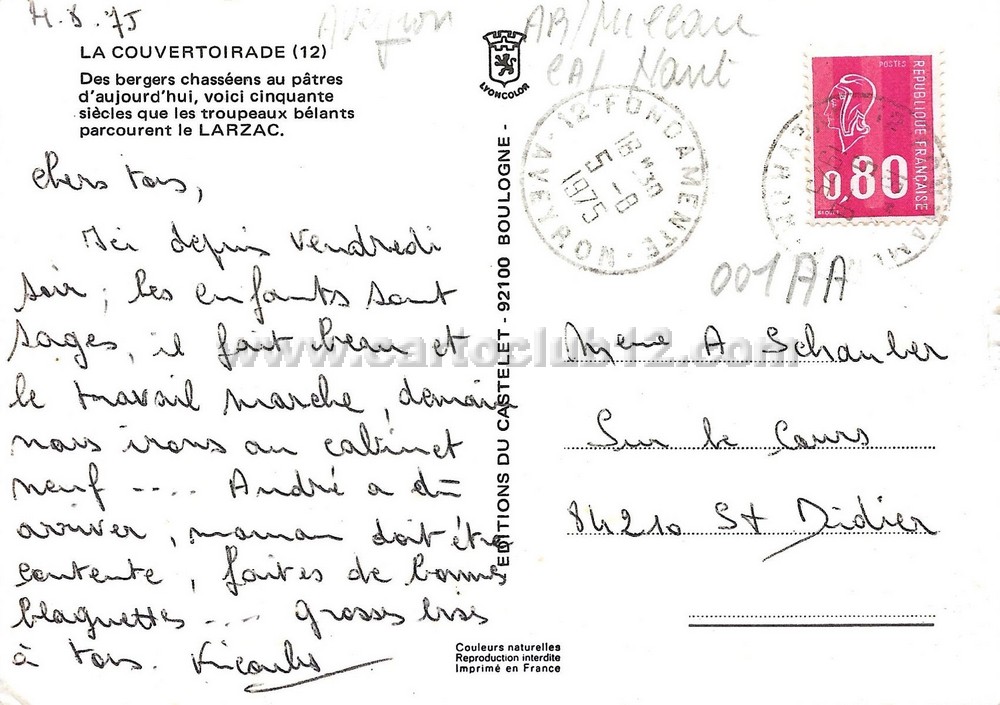 4.8.75
Aveyron AR/Millau
CA/ Nant
LA COUVERTOIRADE (12)
Des bergers chasséens au pâtres
d'aujourd'hui, voici cinquante
siècles que les troupeaux bêlants
parcourent le LARZAC.
LYONCOLOR
Chers tous,
Ici depuis vendredi
soir ; les enfants sont
sages, il fait beau et
le travail marche, demain
nous irons au cabinet
neuf .... André a dû
arriver, maman doit être
contente, faites de bonnes
blaguettes .... grosses bises
à tous.
EDITIONS DU CASTELET - 92100 BOULOGNE -
12 FONDAMENTE
18 H 30
5 -8
1975
AVEYRON
POSTES
REPUBLIQUE FRANÇAISE
0,80
001AA
Mme A Schauber
Sur le Cours
84210 St Didier
www.cartoclub12.com
Couleurs naturelles
Reproduction interdite
Imprimé en France